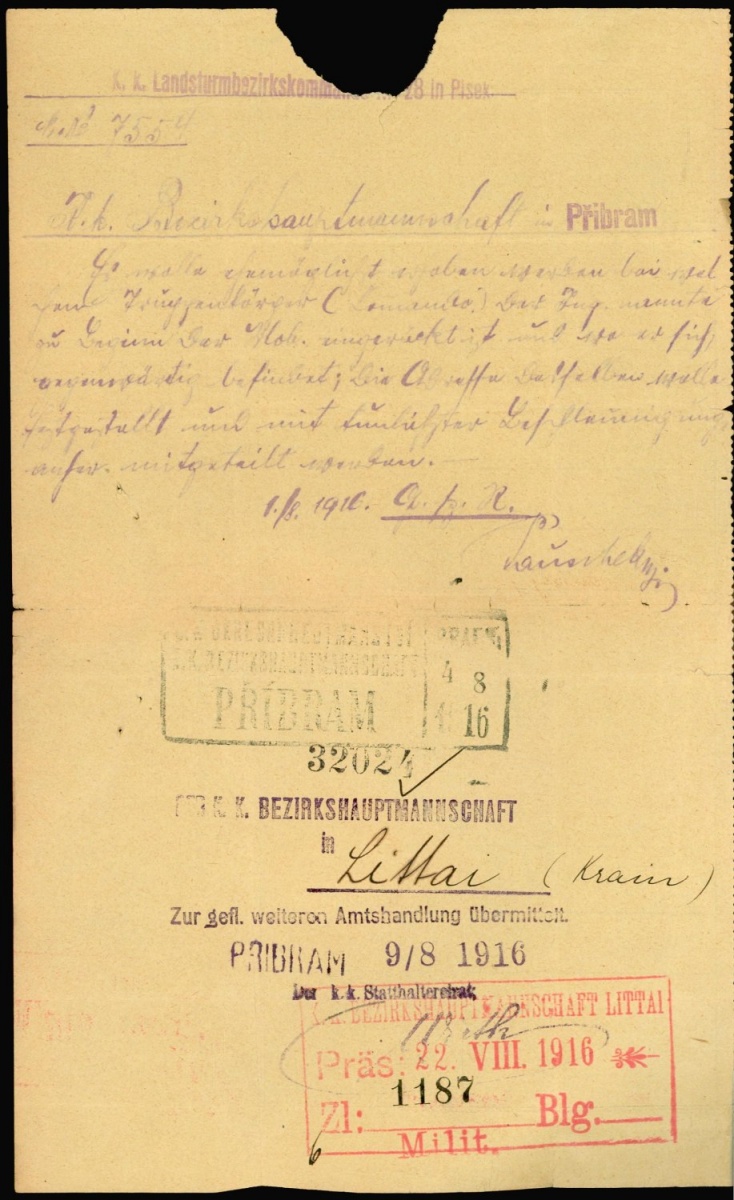 K. k. Landsturmbezirkskommando 28 in Pisek.
7554
K. k. Bezirkshauptmannschaft in Příbram
Es wolle ehemöglichst erhoben werden bei wel
chem Truppenkörper (Comando) der Ing. nannte
zu Beginn der Mob. eingerückt ist und wo er sich
gegenwärtig befindet; die Adresse desselben wolle
festgestellt und mit tunlichster Beschleunigung
anher. mitgeteilt werden. —
1./8. 1916.
K.K. BEZIRKSHAUPTMANNSCHAFT
PŘÍBRAM
4 8
16
32024
K. K. BEZIRKSHAUPTMANNSCHAFT
in
Littai (Krain)
Zur gefl. weiteren Amtshandlung übermittelt.
PŘIBRAM 9/8 1916
Der k.k. Statthaltereirat:
K.K. BEZIRKSHAUPTMANNSCHAFT LITTAI
Präs: 22. VIII. 1916
1187
Zl: Blg.
Milit.
6